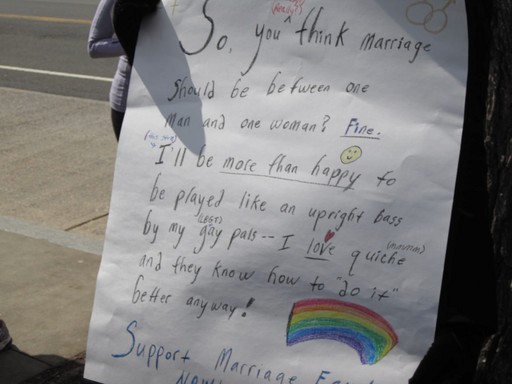 So, you really?? ^ think marriage
should be between one
man and one woman? Fine.
I'll be more than happy to
be played like an upright bass
by my (BEST) gay pals -- I love quiche (mmmm)
and they know how to "do it"
better anyway!
Support Marriage